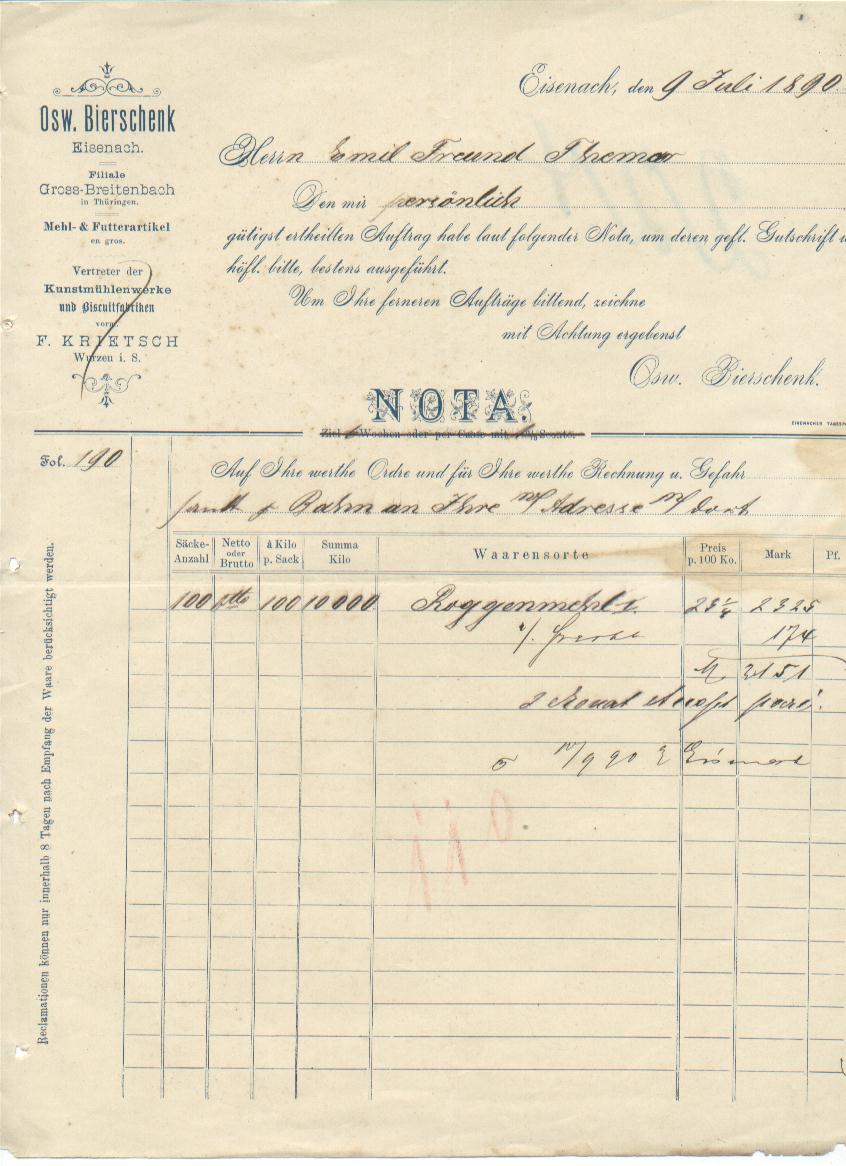 Osw. Bierschenk
Eisenach.
Filiale
Gross-Breitenbach
in Thüringen.
Mehl- & Futterartikel
en gros.
Vertreter der
Kunstmühlenwerke
und Biscuitfabriken
vorm.
F. KRIETSCH
Wurzen i. S.
Eisenach, den 9 Juli 1890.
Herrn Emil Freund Themar
Den mir persönlich
gütigst ertheilten Auftrag habe laut folgender Nota, um deren gefl. Gutschrift
höfl. bitte, bestens ausgeführt.
Um Ihre ferneren Aufträge bittend, zeichne
mit Achtung ergebenst
Osw. Bierschenk.
NOTA.
EISENACHER
Ziel Wochen oder per Casse mit % Sconto.
Fol. 190
Auf Ihre werthe Ordre und für Ihre werthe Rechnung u. Gefahr
Bahn an Ihre Adresse dort
Säcke-Anzahl Netto oder Brutto à Kilo p. Sack Summa Kilo Waarensorte Preis p. 100 Ko. Mark Pf.
100 100 10000 Roggenmehl I. 23¼ 2325
174
M 2151
2 Monat Accept pari.
Reclamationen können nur innerhalb 8 Tagen nach Empfang der Waare berücksichtigt werden.
110